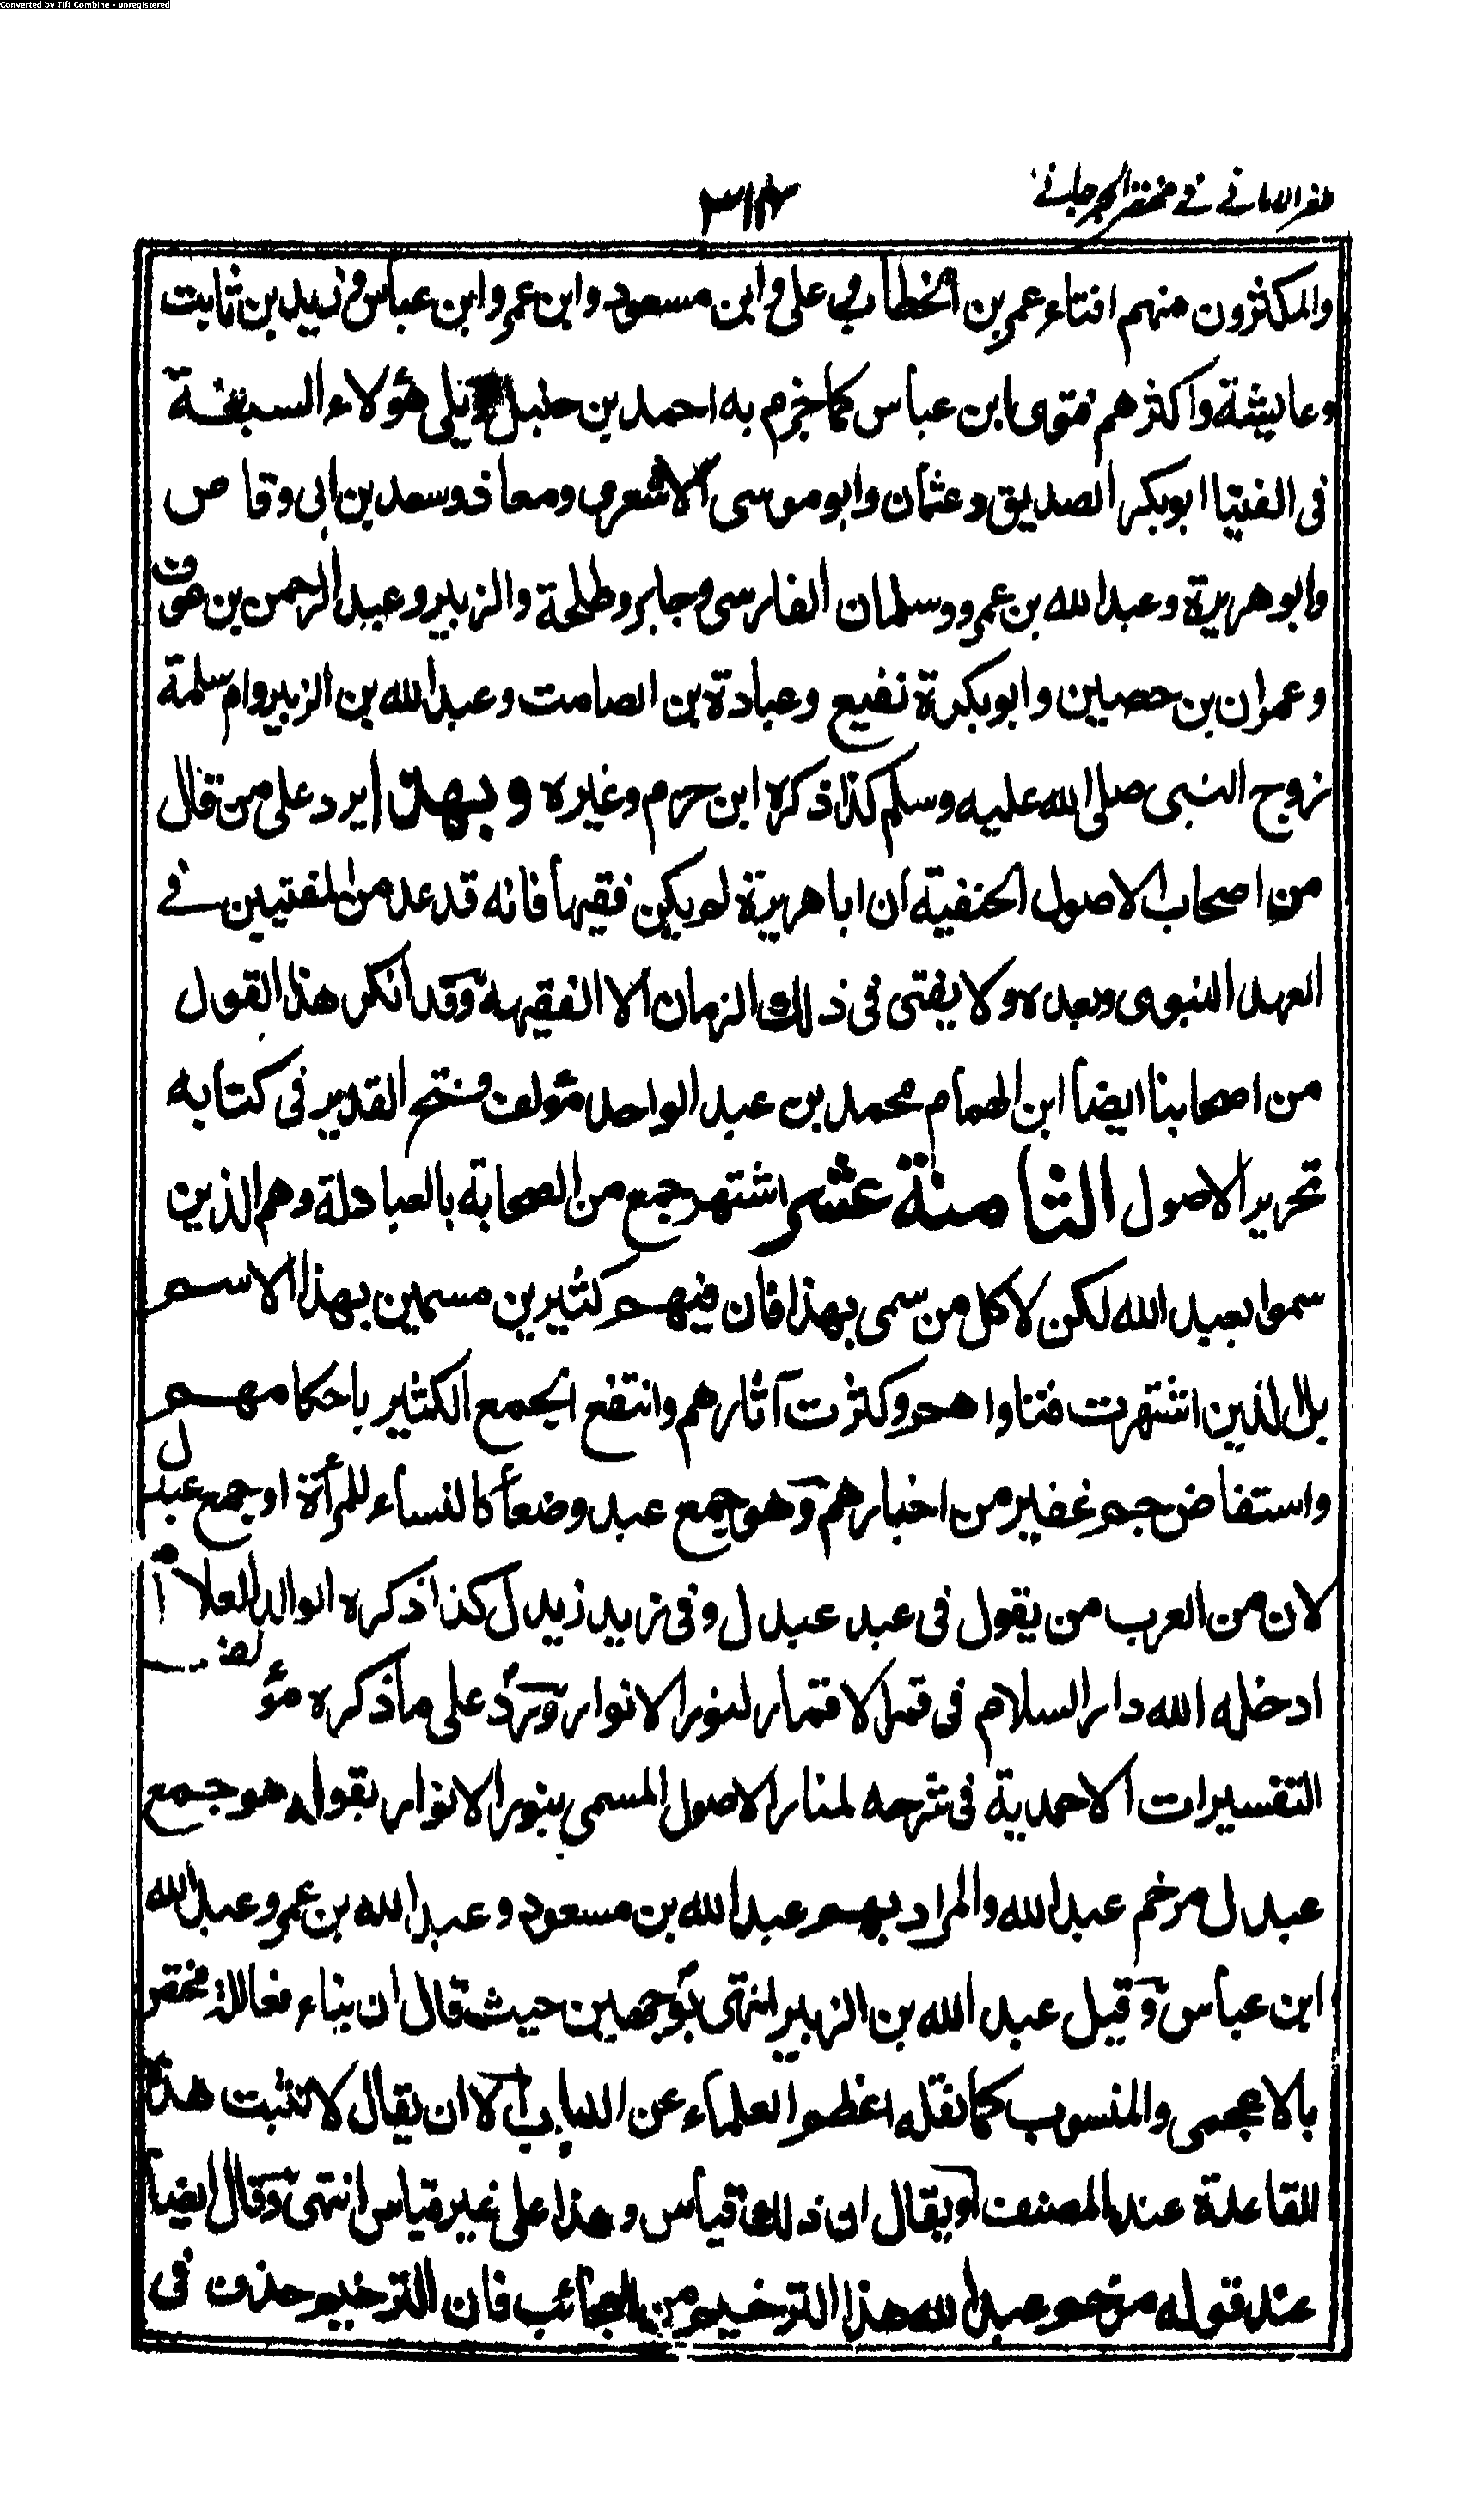 Converted by Tiff Combine - unregistered
ظفر الامانى فى مختصر الجرجانى
٣١٢
والمكثرون منهم افتاء عمر بن الخطاب وعلى وابن مسعود وابن عمر وابن عباس وزيد بن ثابت
وعايشة واكثرهم فتوى ابن عباس كما جزم به احمد بن حنبل يلى هؤلاء السبعة
فى الفتيا ابوبكر الصديق وعثمان وابو موسى الاشعرى ومعاذ وسعد بن ابى وقاص
وابو هريرة وعبد الله بن عمرو وسلمان الفارسى وجابر وطلحة والزبير وعبد الرحمن بن عوف
وعمران بن حصين وابو بكرة نفيع وعبادة بن الصامت وعبد الله بن الزبير وام سلمة
زوج النبى صلى الله عليه وسلم كذا ذكره ابن حزم وغيره وبهذا يرد على من قال
من اصحاب الاصول الحنفية ان ابا هريرة لم يكن فقيها فانه قد عد من المفتيين فى
العهد النبوى وبعده ولا يفتى فى ذلك الزمان الا الفقيه وقد انكر هذا القول
من اصحابنا ايضا ابن الهمام محمد بن عبد الواحد مؤلف فتح القدير فى كتابه
تحرير الاصول الثامنة عشر اشتهر جمع من الصحابة بالعبادلة وهم الذين
سموا بعبد الله لكن لا كل من سمى بهذا فان فيهم كثيرين مسمين بهذا الاسم
بل الذين اشتهرت فتاواهم وكثرت آثارهم وانتفع الجمع الكثير باحكامهم
واستفاض جم غفير من اخبارهم وهو جمع عبد وضعا كالنساء للمرأة او جمع عبدل
لان من العرب من يقول فى عبد عبدل وفى زيد زيدل كذا ذكره الوالد العلام
ادخله الله دار السلام فى قمر الاقمار لنور الانوار ورد على ما ذكره مؤلف
التفسيرات الاحمدية فى شرحه لمنار الاصول المسمى بنور الانوار بقوله هو جمع
عبدل مرخم عبد الله والمراد بهم عبد الله بن مسعود وعبد الله بن عمر وعبد الله
ابن عباس وقيل عبد الله بن الزبير انتهى بوجهين حيث قال ان بناء فعاللة مختص
بالاعجمى والمنسوب كما نقله اعظم العلماء عن اللباب الا ان يقال لا تثبت هذه
القاعدة عند المصنف او يقال ان ذلك قياس وهذا على غير قياس انتهى وقال ايضا
عند قوله مرخم عبد الله هذا الترخيم من العجائب فان الترخيم حذف فى